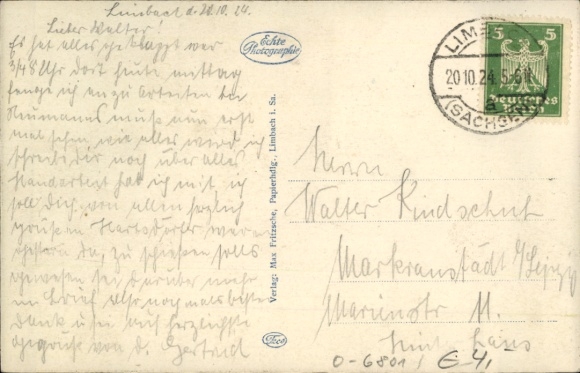 Limbach d. 20.10.24.
Lieber Walter!
Es hat alles geklappt war
3/4 8 Uhr dort heute mittag
fange ich an zu arbeiten bei
Neumanns muß nun erst
mal sehn, wie alles wird ich
schreibe dir noch über alles
Handarbeit hat ich mit, ich
soll Dich von allen herzlich
grüßen Hartsdorfer waren
gestern da, zu
gewesen sei darüber mehr
im Brief also nochmals besten
Dank u. sei auch herzlichste
gegrüßt von d. Gertrud
Echte
Photographie
Verlag: Max Fritzsche, Papierhdlg., Limbach i. Sa.
LIMBACH
20 10.24. 5-6 N
(SACHSEN)
5 5
Deutsches
Herrn
Walter Kindscheit
Markranstädt b/Leipzig
Marienstr 11.
0-6801 / E-4,